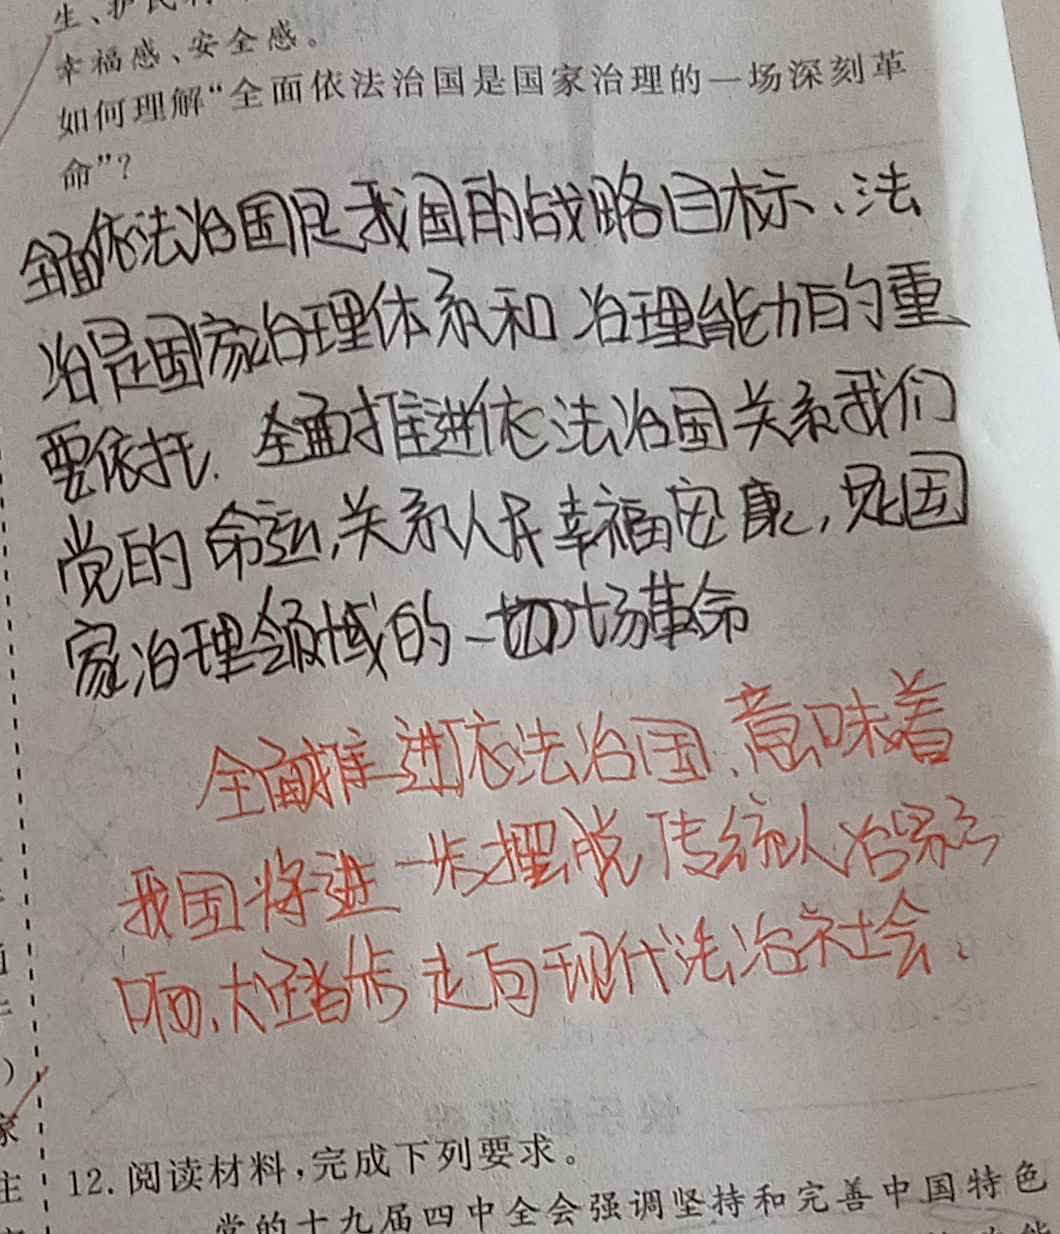 生、护民
幸福感、安全感。
如何理解“全面依法治国是国家治理的一场深刻革
命”?
全面依法治国是我国的战略目标、法
治是国家治理体系和治理能力的重
要依托. 全面推进依法治国关系我们
党的命运,关系人民幸福安康,是国
家治理领域的一切场革命
全面推进依法治国、意味着
我国将进一步摆脱传统人治影
响,大踏步走向现代法治社会、
12.阅读材料,完成下列要求。
党的十九届四中全会强调坚持和完善中国特色
家
主